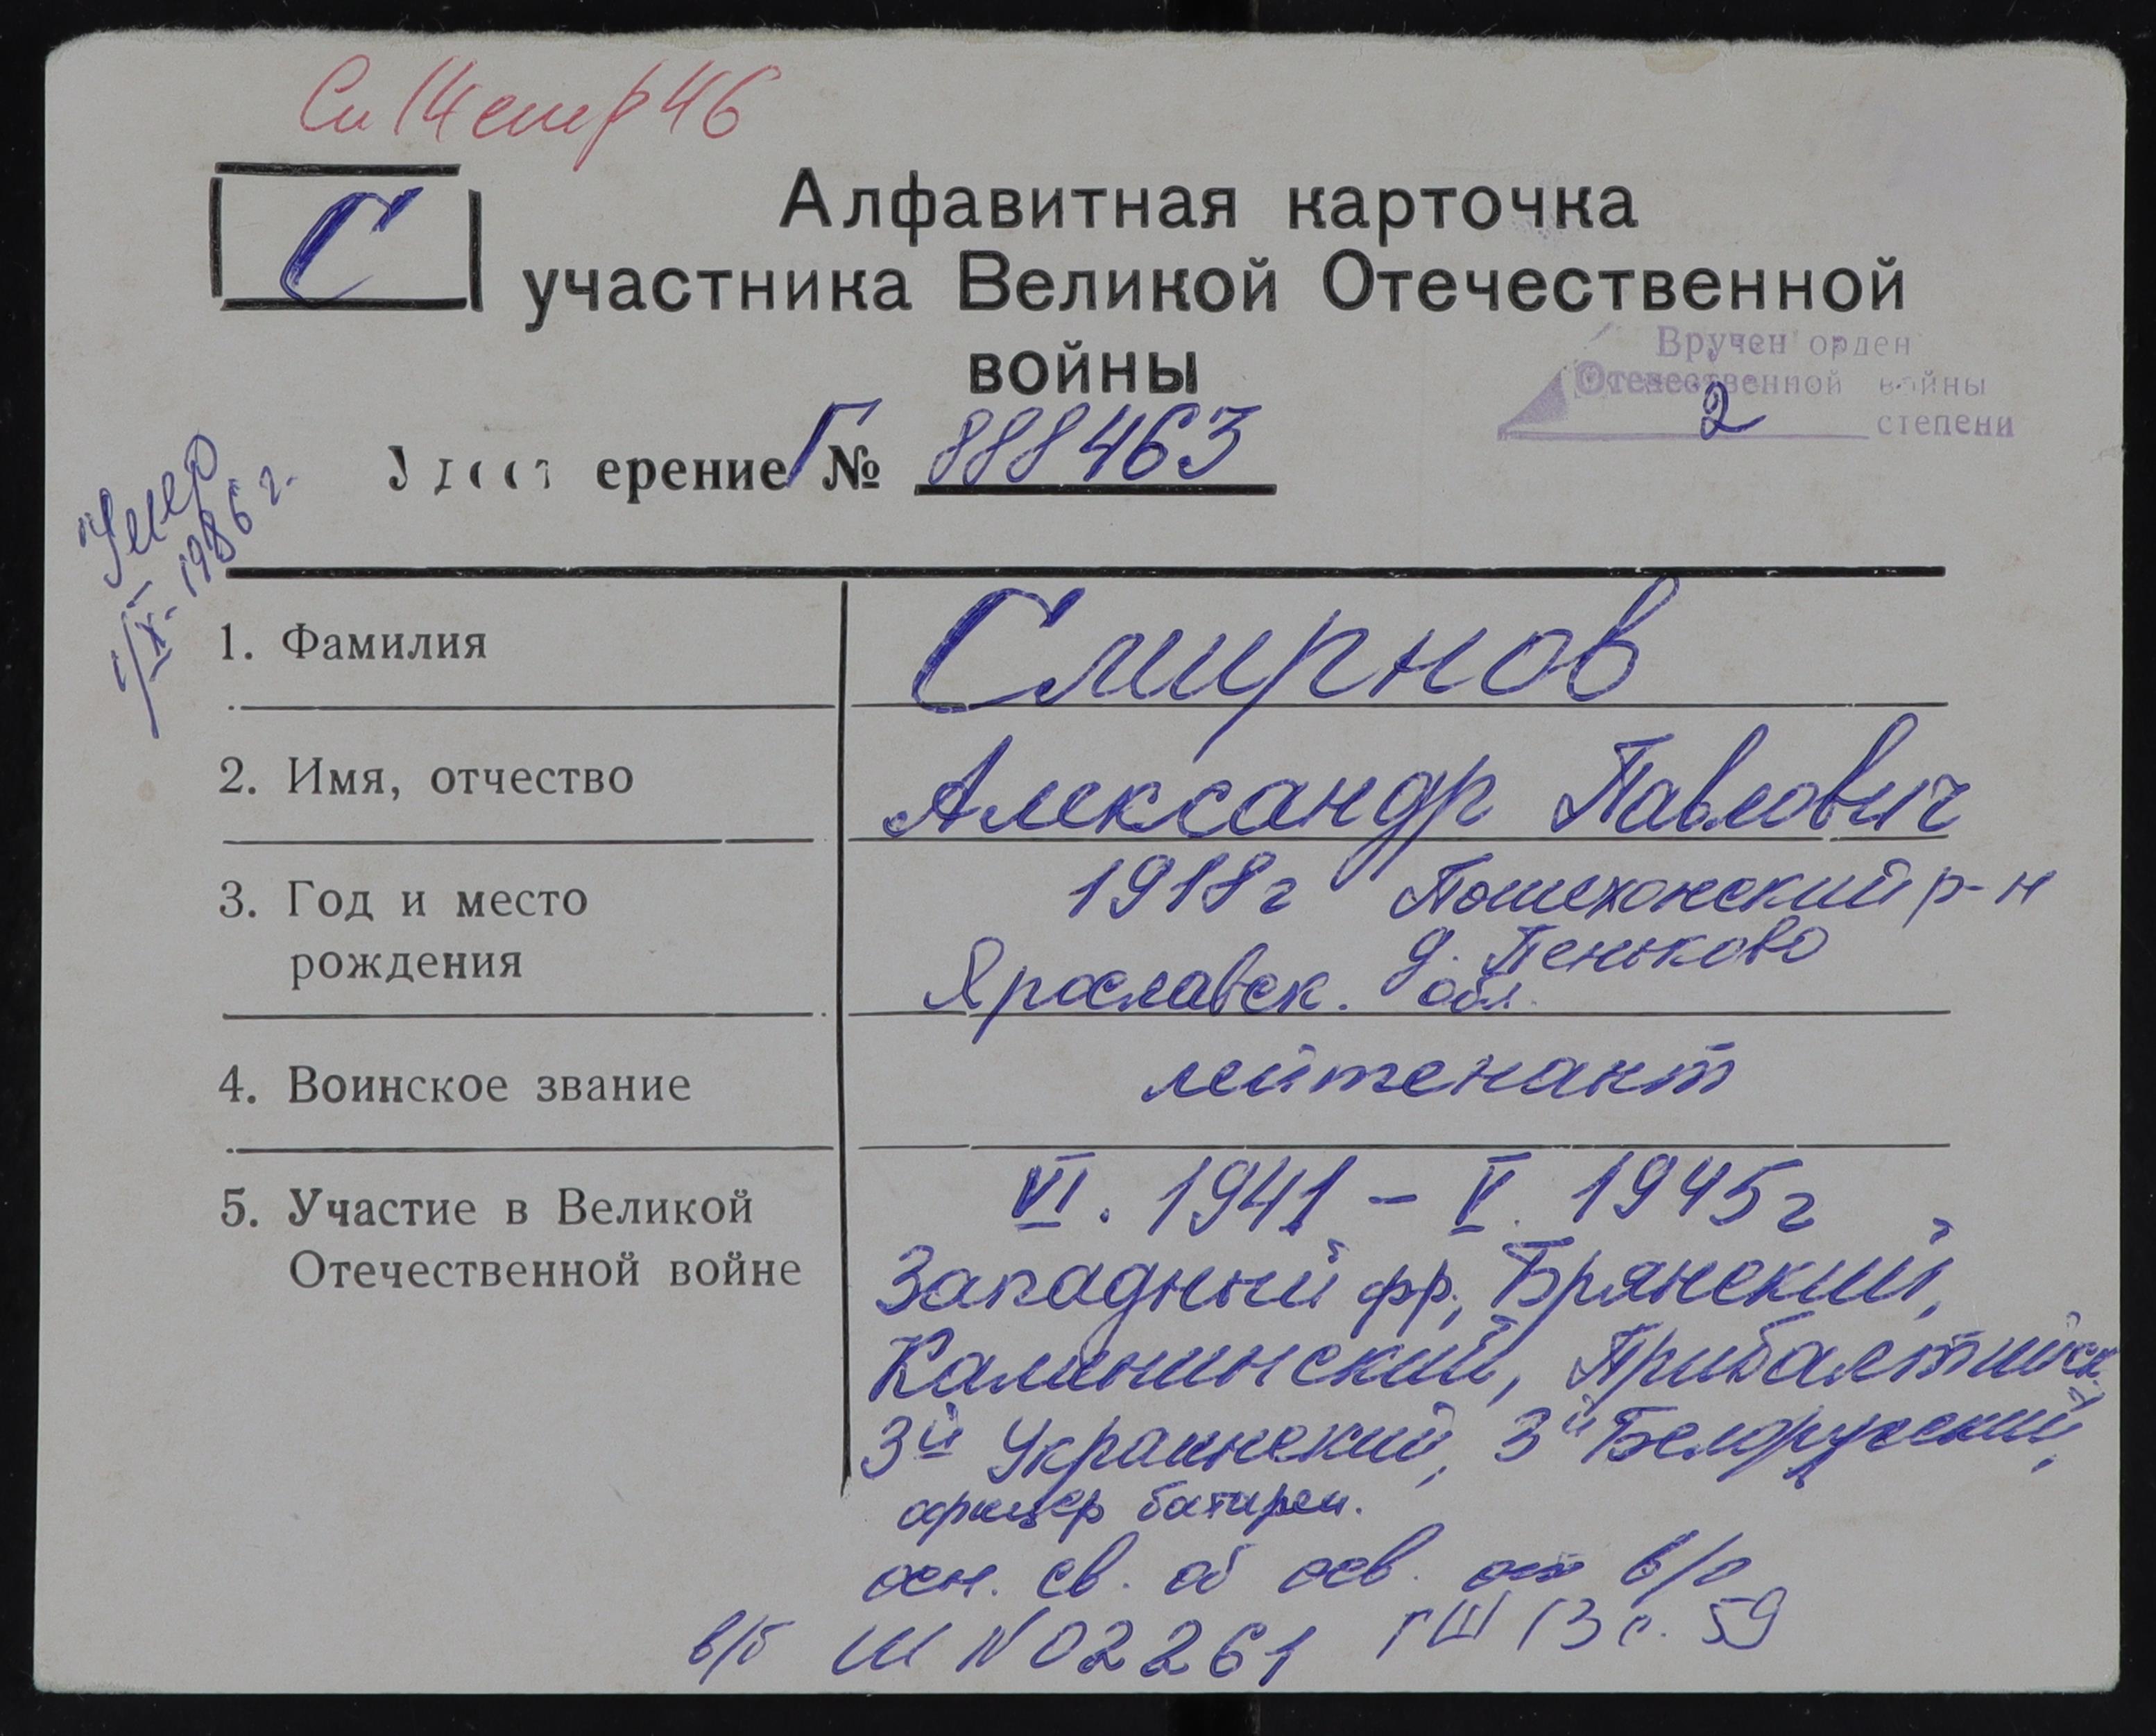 С
Алфавитная карточка
участника Великой Отечественной
войны
Вручен орден
Отечественной войны
2 степени
ерение Г № 888463
Умер
IX. 1986 г.
1. Фамилия Смирнов
2. Имя, отчество Александр Павлович
3. Год и место рождения 1918 г Пошехонский р-н
д. Пеньково
Ярославск. обл.
4. Воинское звание лейтенант
5. Участие в Великой Отечественной войне VI. 1941 - V. 1945 г
Западный фр., Брянский,
Калининский, Прибалтийск.
3й Украинский, 3й Белорусский,
офицер батареи.
осн. св. об осв. от в/о
в/б Ш N 02261 ГШ 13 с. 59